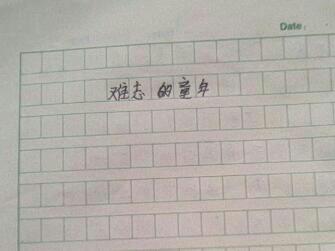 Date:
难志的童年